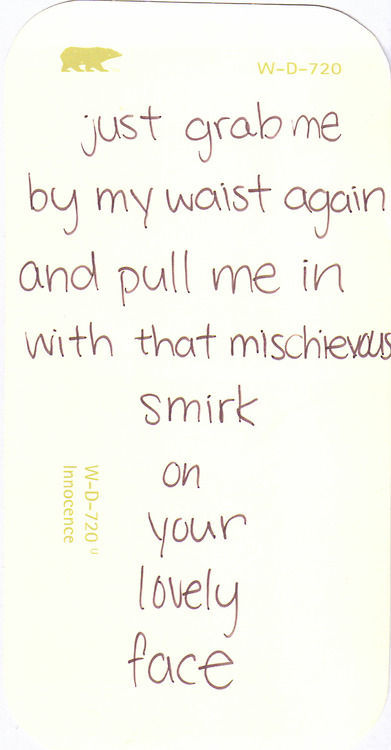 W-D-720
just grab me
by my waist again
and pull me in
with that mischievous
smirk
on
your
lovely
face
W-D-720 U
Innocence